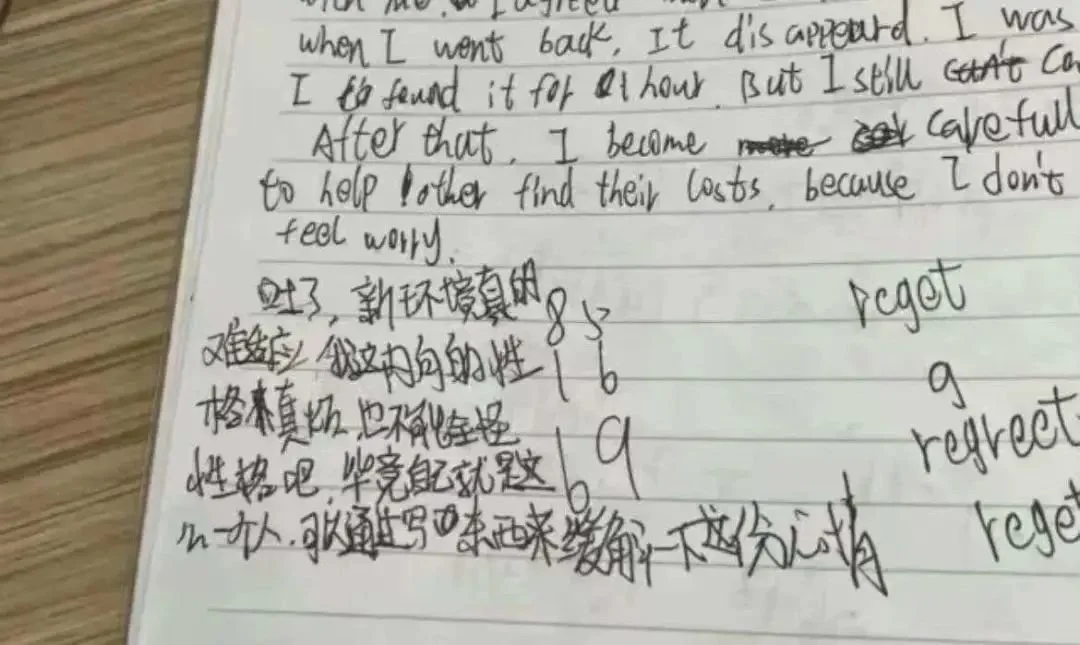 with me. I agreed
when I went back, It disappeard. I was
I found it for 1 hour. But I still can't Ca
After that, I become more carefull
to help other find their Losts, because I don't
feel worry.
新环境真的 85 reget
难适应 我这内向的性 16 g
格真 也不能全怪 regrect
性格吧,毕竟自己就是这 69
么一个人,可以通过写东西来缓解一下这份心情 rege